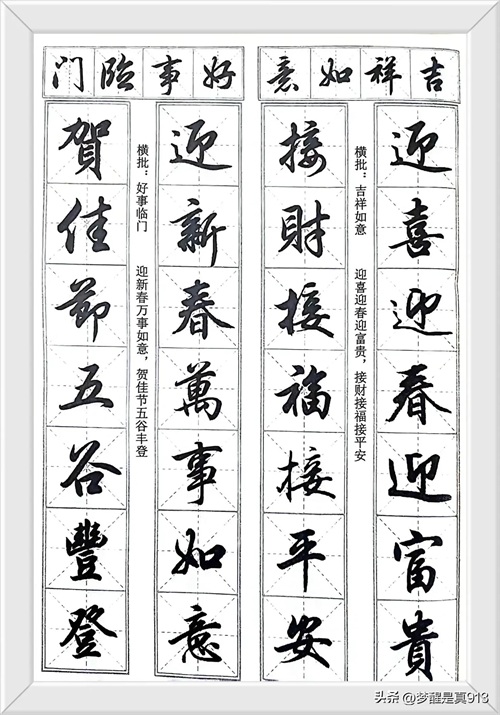 吉祥如意
迎喜迎春迎富貴
横批：吉祥如意
迎喜迎春迎富贵，接财接福接平安
接財接福接平安
好事临门
迎新春萬事如意
横批：好事临门
迎新春万事如意，贺佳节五谷丰登
賀佳節五谷豐登
头条@梦醒是真913